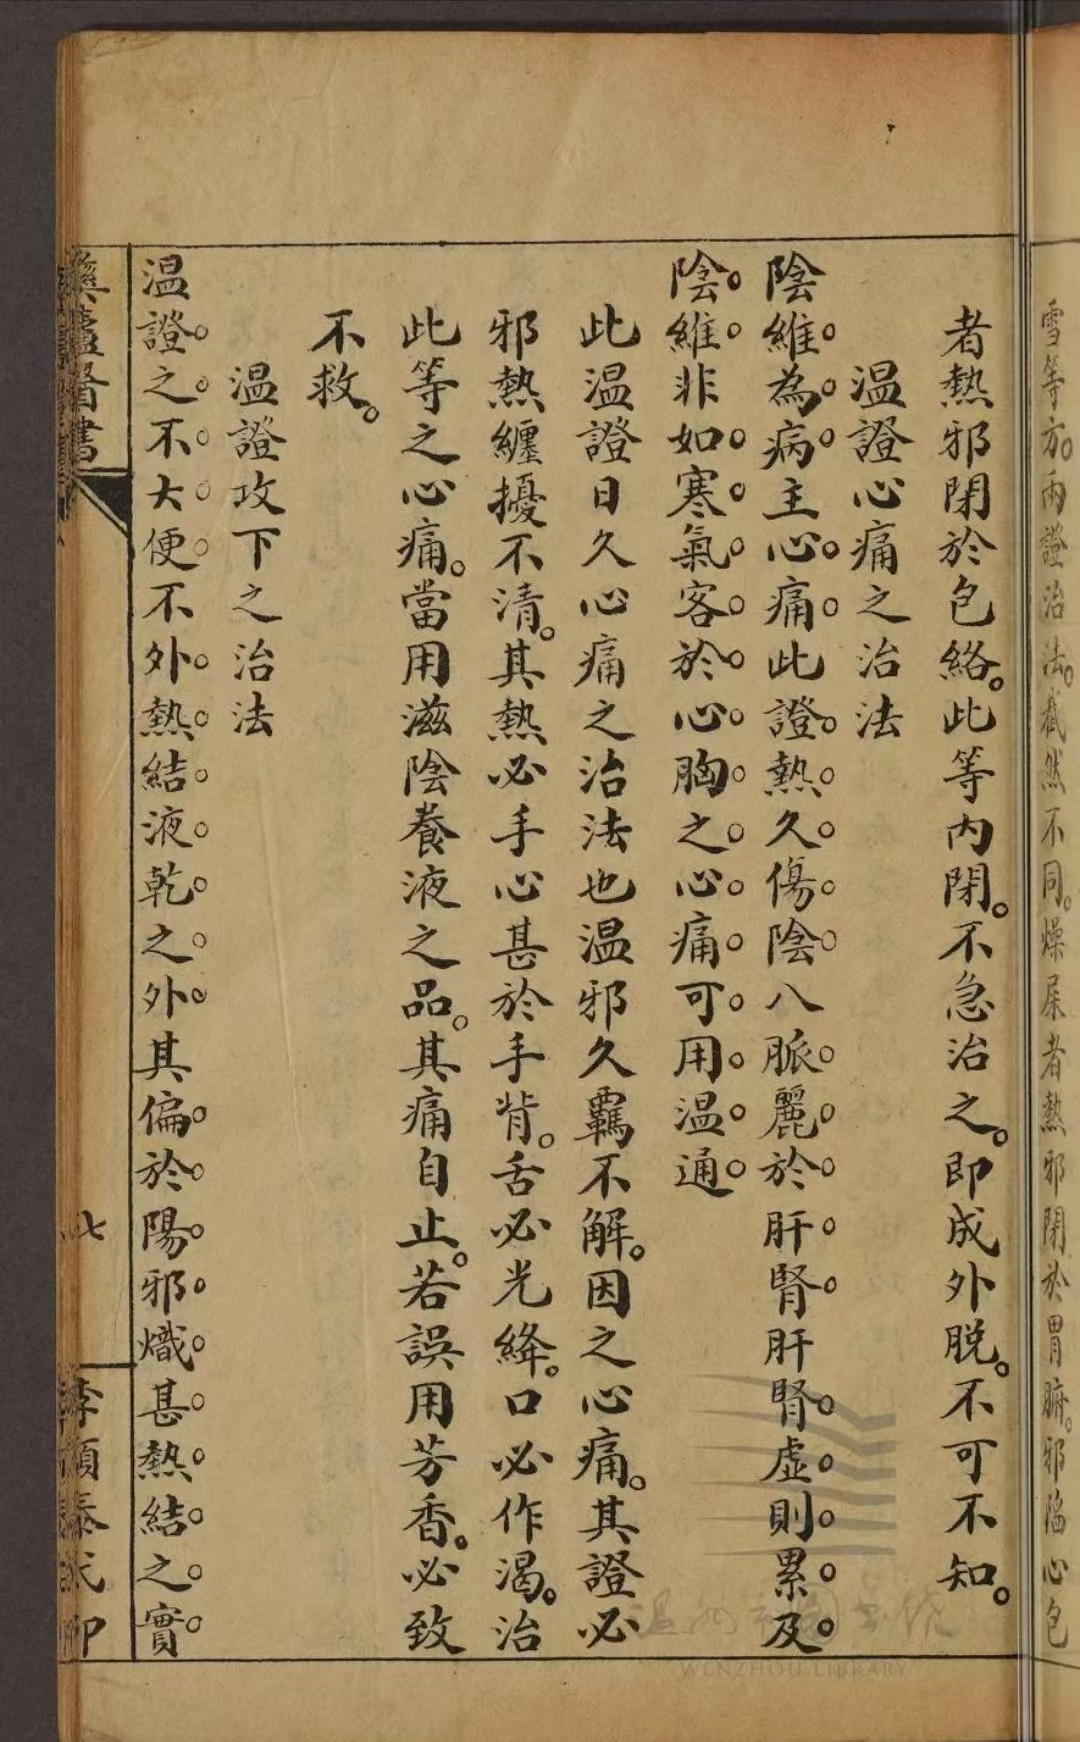 雪等方。兩證治法。截然不同。燥屎者熱邪閉於胃腑。邪陷心包
者熱邪閉於包絡。此等內閉。不急治之。即成外脫。不可不知。
温證心痛之治法
陰維為病主心痛此證熱久傷陰八脈麗於肝腎肝腎虛則累及
陰維非如寒氣客於心胸之心痛可用温通
此温證日久心痛之治法也温邪久羈不解。因之心痛。其證必
邪熱纏擾不清。其熱必手心甚於手背。舌必光絳。口必作渴。治
此等之心痛。當用滋陰養液之品。其痛自止。若誤用芳香。必致
不救。
温證攻下之治法
温證之不大便不外熱結液乾之外其偏於陽邪熾甚熱結之實
醫書
七
WENZHOU LIBRARY